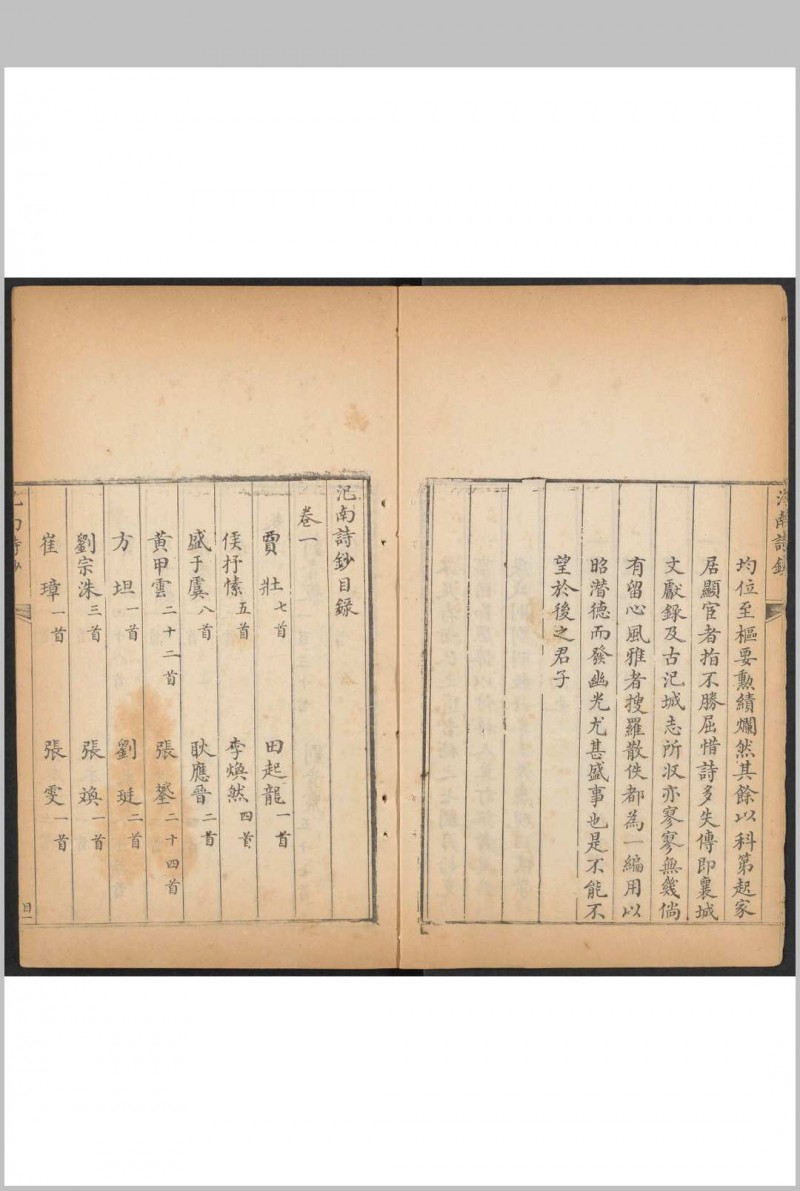 南詩鈔
均位至樞要勳績爛然其餘以科第起家
居顯宦者指不勝屈惜詩多失傳即襄城
文獻錄及古氾城志所収亦寥寥無幾倘
有留心風雅者搜羅散佚都為一編用以
昭潛德而發幽光尤甚盛事也是不能不
望於後之君子
氾南詩鈔目錄
卷一
賈壯 七首 田起龍 一首
侯抒愫 五首 李煥然 四首
盛于虞 八首 耿應晉 二首
黃甲雲 二十二首 張鋆 二十四首
方坦 一首 劉珽 二首
劉宗洙 三首 張煥 一首
崔璋 一首 張雯 一首
南詩鈔
目一